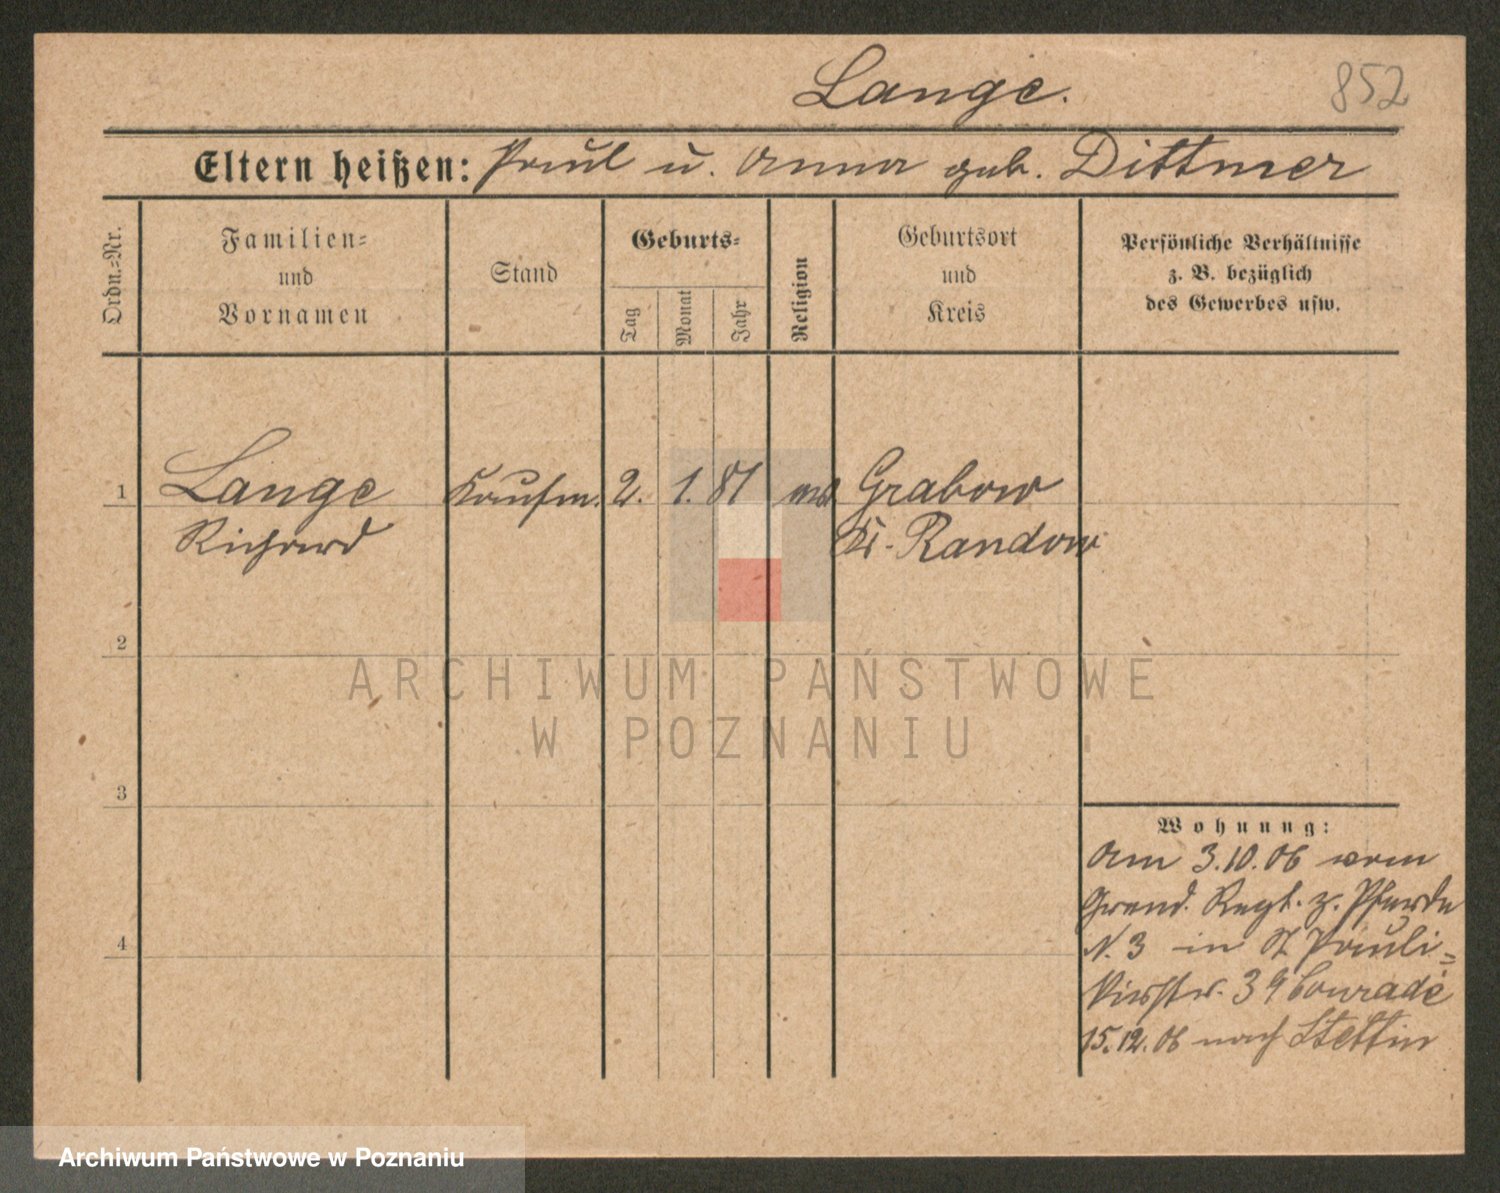 Lange.
852
Eltern heißen: Paul u. Anna geb. Dittmer
Ordn.=Nr.
Familien=
und
Vornamen
Stand
Geburts=
Tag
Monat
Jahr
Religion
Geburtsort
und
Kreis
Persönliche Verhältnisse
z. B. bezüglich
des Gewerbes usw.
1 Lange Kaufm. 2. 1. 81 Grabow
Richard Kr. Randow
2
3
4
Wohnung:
Am 3.10.06 vom
Grend. Regt. z. Pferde
N. 3 in St Pauli=
kirchstr. 3 9 Conrade
15.12.06 nach Stettin
ARCHIWUM PAŃSTWOWE
W POZNANIU
Archiwum Państwowe w Poznaniu